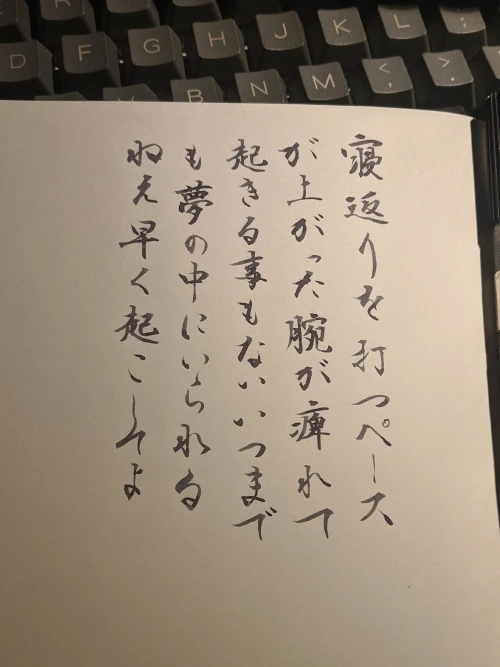 D F G H J K L
B N M < , > .
寝返りを打つペース
が上がった腕が痺れて
起きる事もないいつまで
も夢の中にいられる
ねえ早く起こしてよ